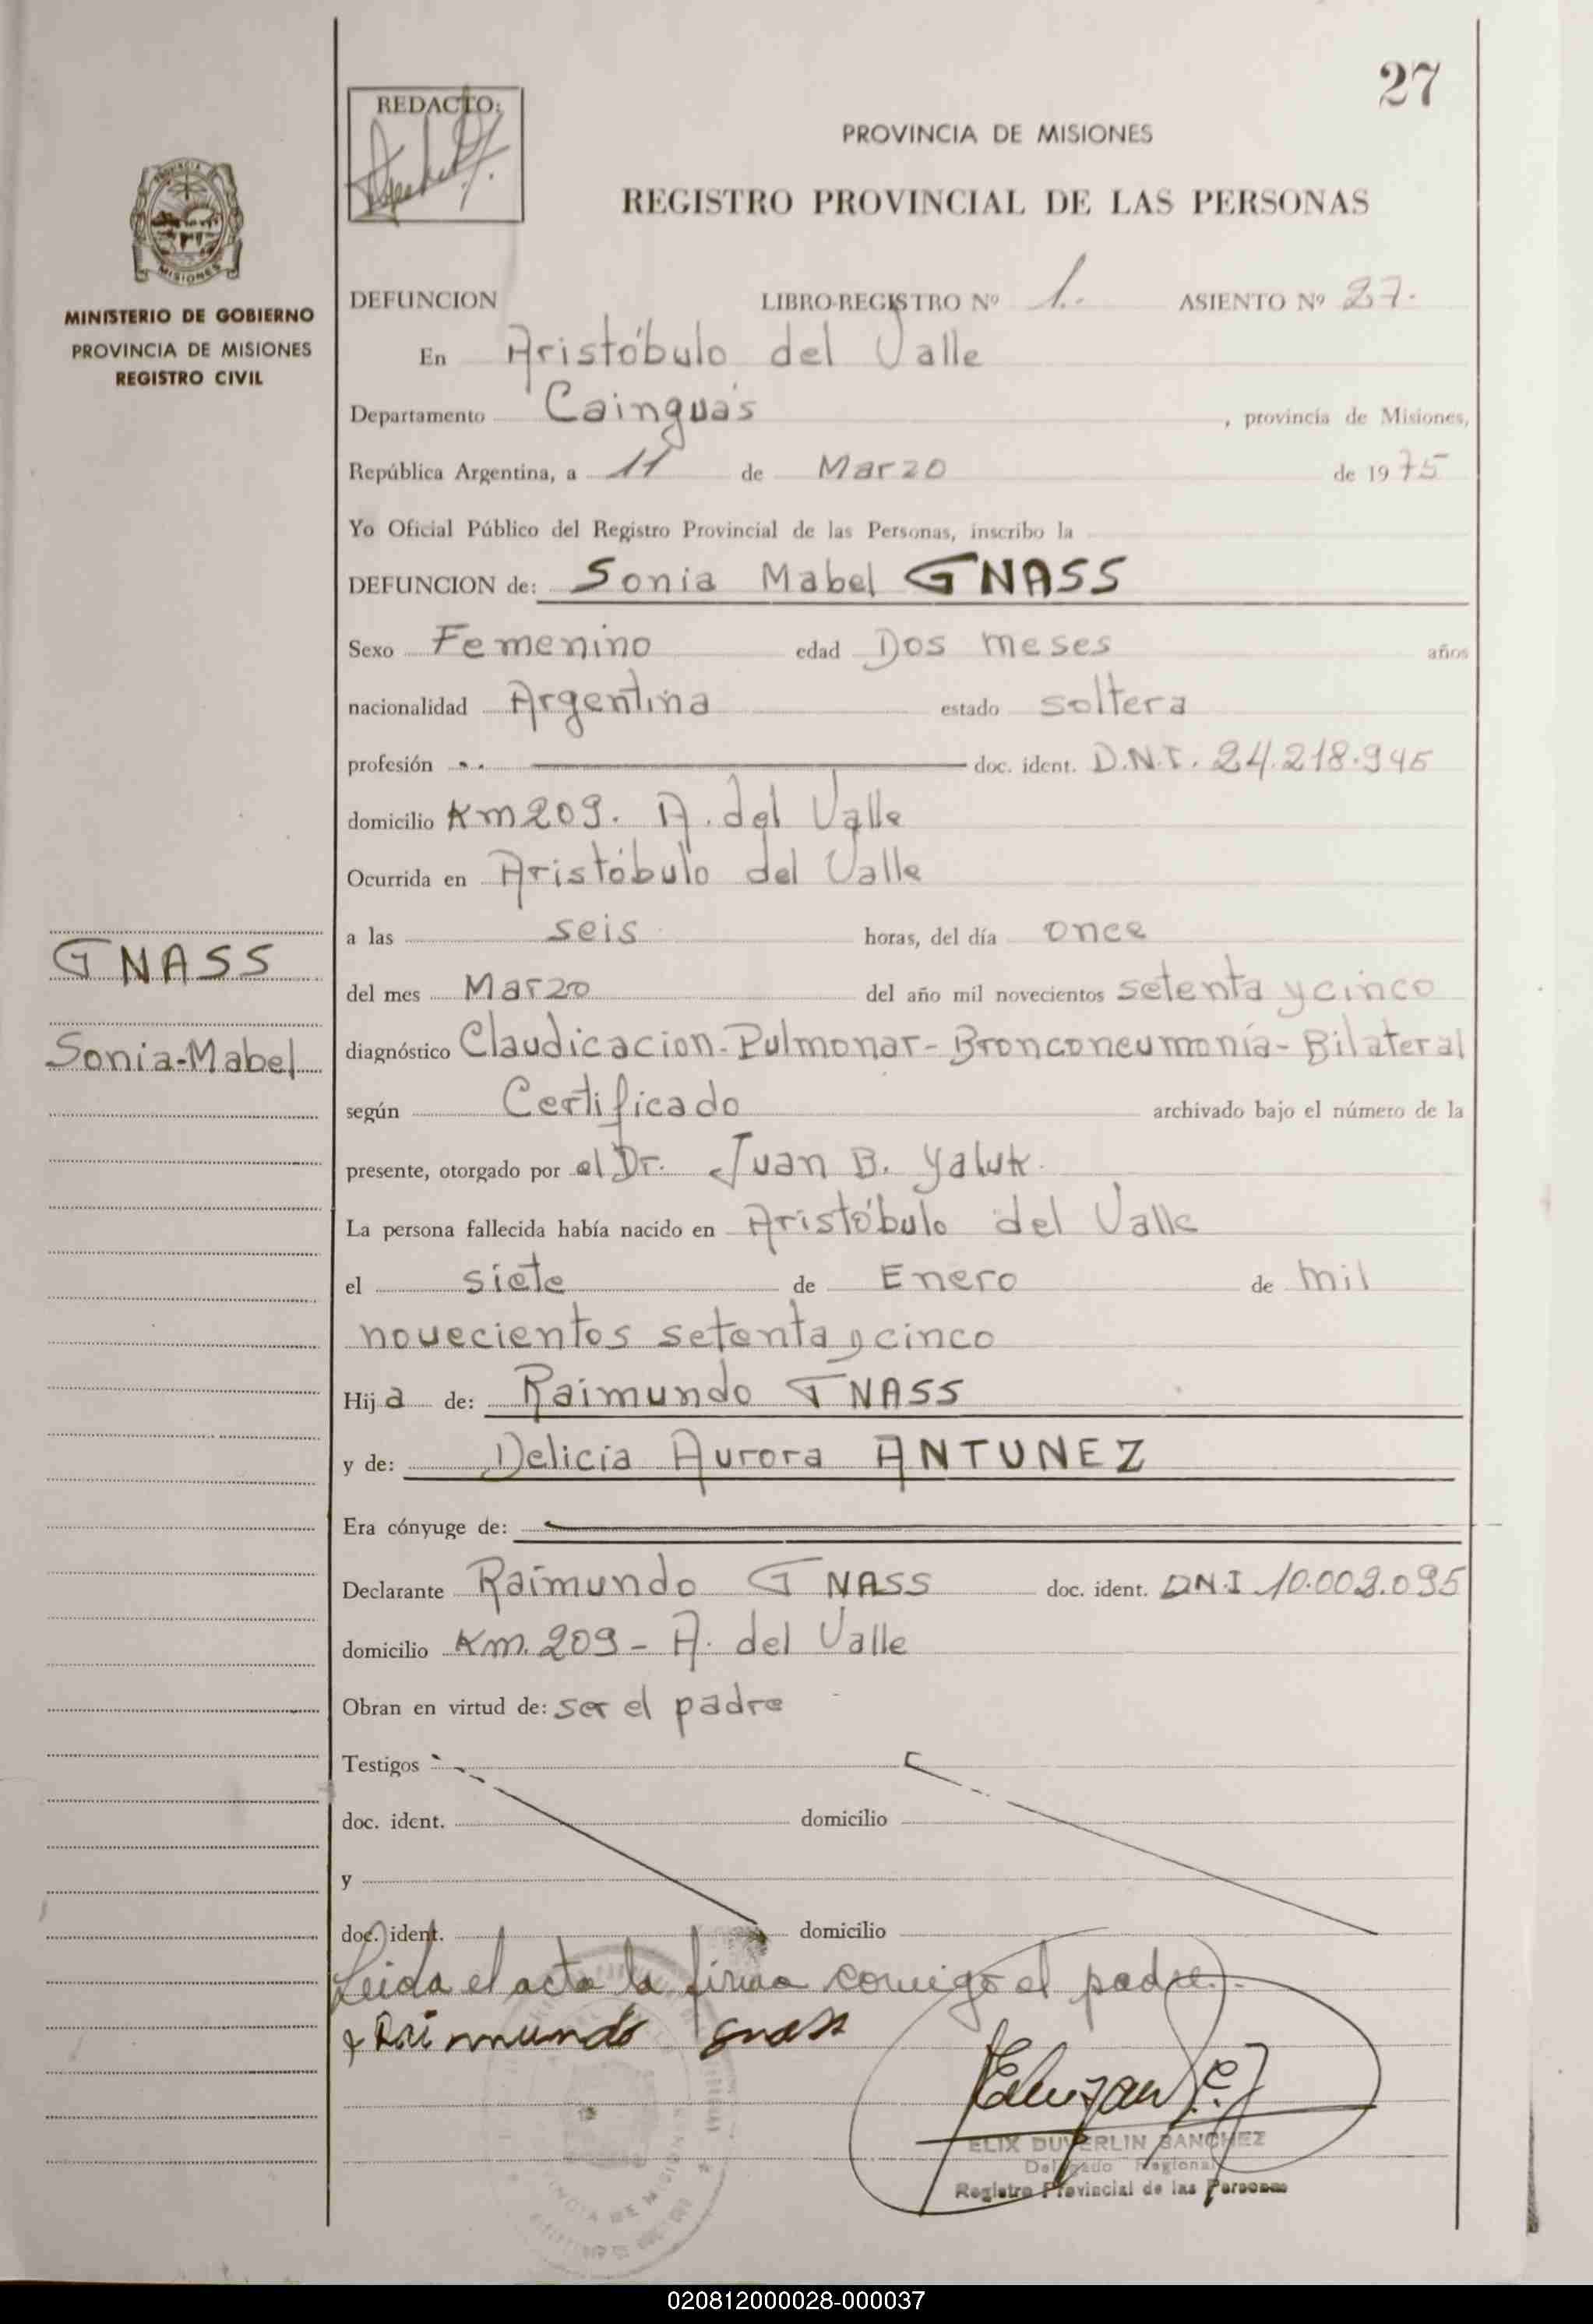 27
REDACTO:
PROVINCIA DE MISIONES
REGISTRO PROVINCIAL DE LAS PERSONAS
MISIONES
MINISTERIO DE GOBIERNO
PROVINCIA DE MISIONES
REGISTRO CIVIL
DEFUNCION LIBRO-REGISTRO Nº 1. ASIENTO Nº 27.
En Aristóbulo del Valle
Departamento Cainguás, provincia de Misiones,
República Argentina, a 11 de Marzo de 1975
Yo Oficial Público del Registro Provincial de las Personas, inscribo la
DEFUNCION de: Sonia Mabel GNASS
Sexo Femenino edad Dos meses años
nacionalidad Argentina estado soltera
profesión doc. ident. D.N.I. 24.218.945
domicilio Km 209. A. del Valle
Ocurrida en Aristóbulo del Valle
a las seis horas, del día once
GNASS
del mes Marzo del año mil novecientos setenta y cinco
Sonia-Mabel
diagnóstico Claudicacion-Pulmonar-Bronconeumonía-Bilateral
según Certificado archivado bajo el número de la
presente, otorgado por el Dr. Juan B. Yaluk.
La persona fallecida había nacido en Aristóbulo del Valle
el siete de Enero de mil
novecientos setenta y cinco
Hija de: Raimundo GNASS
y de: Delicia Aurora ANTUNEZ
Era cónyuge de:
Declarante Raimundo GNASS doc. ident. DN.I 10.009.095
domicilio Km. 209 - A. del Valle
Obran en virtud de: ser el padre
Testigos
doc. ident. domicilio
y
doc. ident. domicilio
Leida el acta la firma conmigo el padre.
Raimundo Gnass
ELIX DUVERLIN SANCHEZ
Delegado Regional
Registro Provincial de las Personas
020812000028-000037